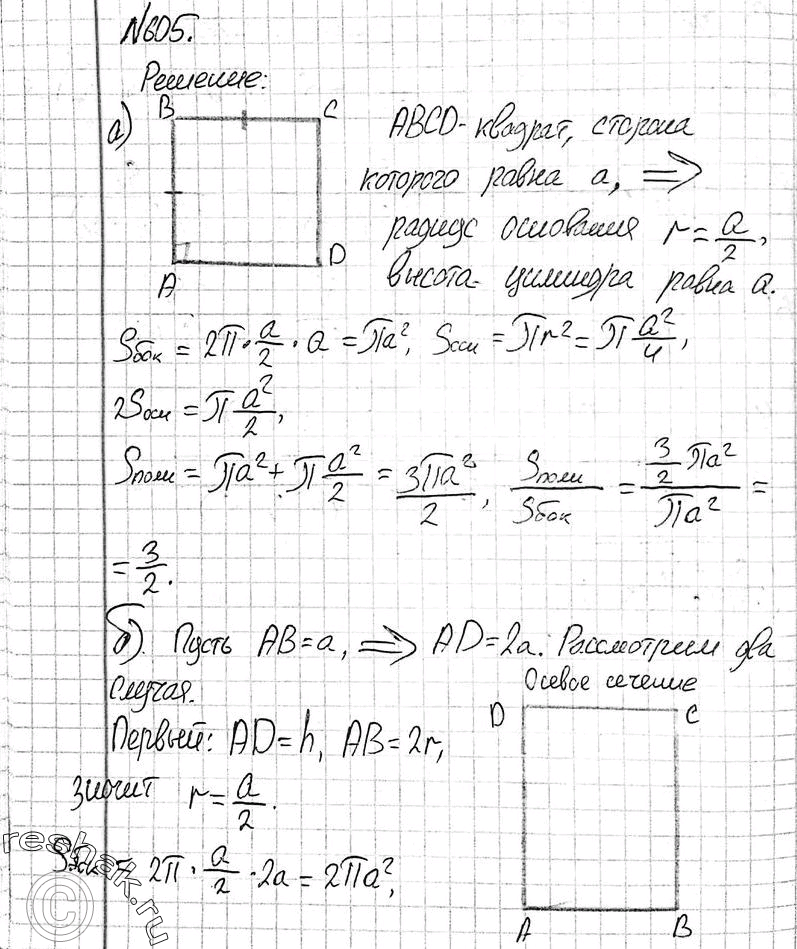 №605.
Решение:
а)
B C
A D
ABCD - квадрат, сторона
которого равна a, ⟹
радиус основания r = a/2,
высота цилиндра равна a.
Sбок = 2π · a/2 · a = πa², Sосн = πr² = π a²/4,
2Sосн = π a²/2,
Sполн = πa² + π a²/2 = 3πa²/2, Sполн/Sбок = (3/2 πa²)/(πa²) =
= 3/2.
б). Пусть AB = a, ⟹ AD = 2a. Рассмотрим два
случая.
Осевое сечение
D C
A B
Первый: AD = h, AB = 2r,
значит r = a/2.
Sбок = 2π · a/2 · 2a = 2πa²,
reshak.ru
©